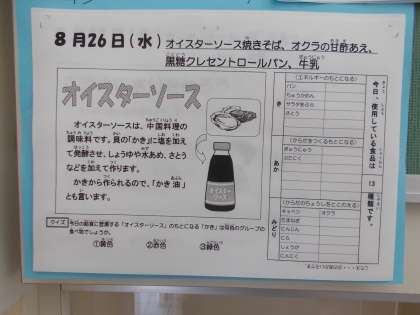 8月26日（水）オイスターソース焼きそば、オクラの甘酢あえ、
黒糖クレセントロールパン、牛乳
オイスターソース
オイスターソースは、中国料理の
調味料です。貝の「かき」に塩を加え
て発酵させ、しょうゆや水あめ、さとう
などを加えて作ります。
かきから作られるので、「かき油」
とも言います。
オイスター
ソース
クイズ 今日の給食に登場する「オイスターソース」のもとになる「かき」は何色のグループの
食べ物でしょうか。
①黄色 ②赤色 ③緑色
今日、使用している食品は 13 種類です。
き
（エネルギーのもとになる）
パン
ちゅうかめん
サラダあぶら
さとう
あか
（からだをつくるもとになる）
ぎゅうにゅう
ぶたにく
みどり
（からだのちょうしをととのえる）
キャベツ オクラ
たまねぎ
にんじん
にら
しょうが
にんにく